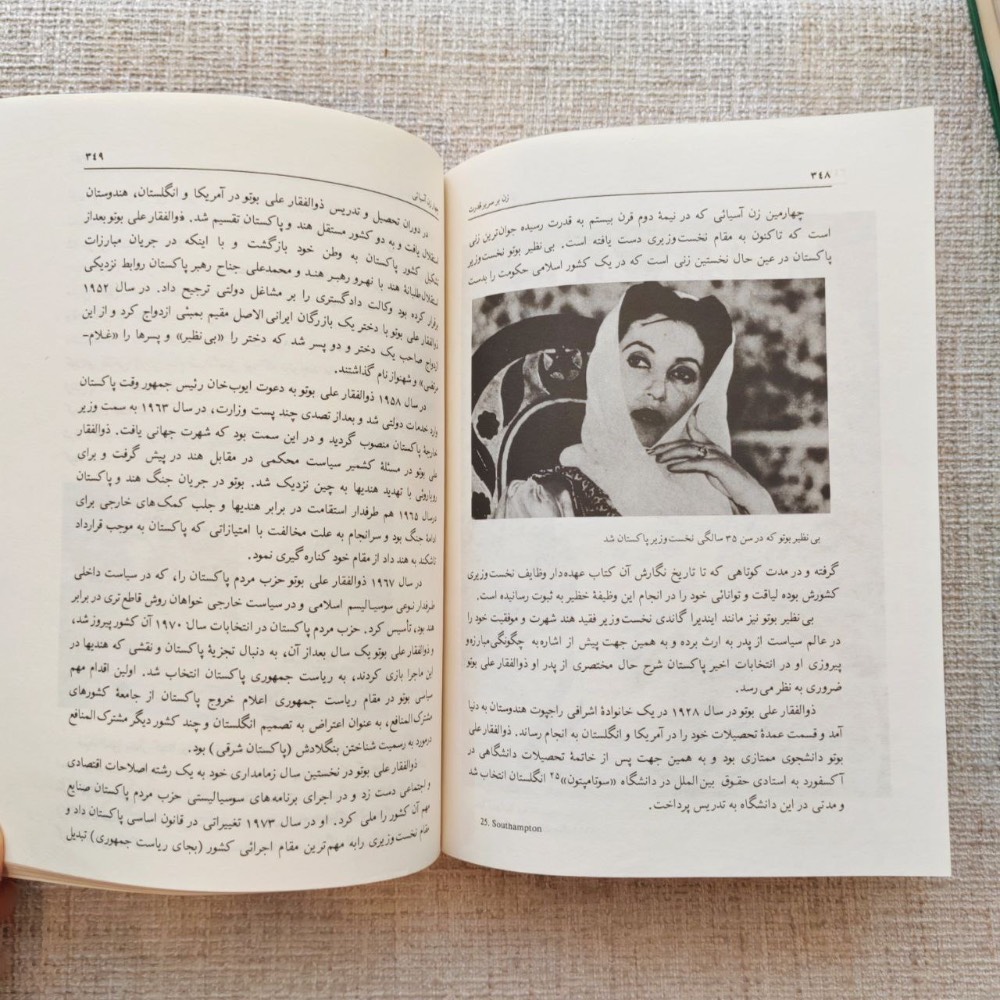 ۳۴۸
زن بر سریر قدرت
چهارمین زن آسیائی که در نیمهٔ دوم قرن بیستم به قدرت رسیده جوان‌ترین زنی
است که تاکنون به مقام نخست‌وزیری دست یافته است. بی‌نظیر بوتو نخست‌وزیر
پاکستان در عین حال نخستین زنی است که در یک کشور اسلامی حکومت را بدست
بی نظیر بوتو که در سن ۳۵ سالگی نخست وزیر پاکستان شد
گرفته و در مدت کوتاهی که تا تاریخ نگارش آن کتاب عهده‌دار وظایف نخست‌وزیری
کشورش بوده لیاقت و توانائی خود را در انجام این وظیفهٔ خطیر به ثبوت رسانیده است.
بی نظیر بوتو نیز مانند ایندیرا گاندی نخست وزیر فقید هند شهرت و موفقیت خود را
در عالم سیاست از پدر به ارث برده و به همین جهت پیش از اشاره به چگونگی مبارزه و
پیروزی او در انتخابات اخیر پاکستان شرح حال مختصری از پدر او ذوالفقار علی بوتو
ضروری به نظر می رسد.
ذوالفقار علی بوتو در سال ۱۹۲۸ در یک خانوادهٔ اشرافی راجپوت هندوستان به دنیا
آمد و قسمت عمدهٔ تحصیلات خود را در آمریکا و انگلستان به انجام رساند. ذوالفقار علی
بوتو دانشجوی ممتازی بود و به همین جهت پس از خاتمهٔ تحصیلات دانشگاهی در
آکسفورد به استادی حقوق بین الملل در دانشگاه «سوتامپتون»۲۵ انگلستان انتخاب شد
و مدتی در این دانشگاه به تدریس پرداخت.
25. Southampton
۳۴۹
چهار زن آسیائی
در دوران تحصیل و تدریس ذوالفقار علی بوتو در آمریکا و انگلستان، هندوستان
استقلال یافت و به دو کشور مستقل هند و پاکستان تقسیم شد. ذوالفقار علی بوتو بعد از
تشکیل کشور پاکستان به وطن خود بازگشت و با اینکه در جریان مبارزات
استقلال طلبانهٔ هند با نهرو رهبر هند و محمدعلی جناح رهبر پاکستان روابط نزدیکی
برقرار کرده بود وکالت دادگستری را بر مشاغل دولتی ترجیح داد. در سال ۱۹۵۲
ذوالفقار علی بوتو با دختر یک بازرگان ایرانی الاصل مقیم بمبئی ازدواج کرد و از این
ازدواج صاحب یک دختر و دو پسر شد که دختر را «بی‌نظیر» و پسرها را «غلام-
مرتضی» و شهنواز نام گذاشتند.
در سال ۱۹۵۸ ذوالفقار علی بوتو به دعوت ایوب‌خان رئیس جمهور وقت پاکستان
وارد خدمات دولتی شد و بعد از تصدی چند پست وزارت، در سال ۱۹۶۳ به سمت وزیر
خارجهٔ پاکستان منصوب گردید و در این سمت بود که شهرت جهانی یافت. ذوالفقار
علی بوتو در مسئلهٔ کشمیر سیاست محکمی در مقابل هند در پیش گرفت و برای
رویاروئی با تهدید هندیها به چین نزدیک شد. بوتو در جریان جنگ هند و پاکستان
در سال ۱۹۶۵ هم طرفدار استقامت در برابر هندیها و جلب کمک های خارجی برای
ادامهٔ جنگ بود و سرانجام به علت مخالفت با امتیازاتی که پاکستان به موجب قرارداد
تاشکند به هند داد از مقام خود کناره گیری نمود.
در سال ۱۹۶۷ ذوالفقار علی بوتو حزب مردم پاکستان را، که در سیاست داخلی
طرفدار نوعی سوسیالیسم اسلامی و در سیاست خارجی خواهان روش قاطع تری در برابر
هند بود، تأسیس کرد. حزب مردم پاکستان در انتخابات سال ۱۹۷۰ آن کشور پیروز شد،
و ذوالفقار علی بوتو یک سال بعد از آن، به دنبال تجزیهٔ پاکستان و نقشی که هندیها در
این ماجرا بازی کردند، به ریاست جمهوری پاکستان انتخاب شد. اولین اقدام مهم
سیاسی بوتو در مقام ریاست جمهوری اعلام خروج پاکستان از جامعهٔ کشورهای
مشترک المنافع، به عنوان اعتراض به تصمیم انگلستان و چند کشور دیگر مشترک المنافع
در مورد به رسمیت شناختن بنگلادش (پاکستان شرقی) بود.
ذوالفقار علی بوتو در نخستین سال زمامداری خود به یک رشته اصلاحات اقتصادی
و اجتماعی دست زد و در اجرای برنامه های سوسیالیستی حزب مردم پاکستان صنایع
مهم آن کشور را ملی کرد. او در سال ۱۹۷۳ تغییراتی در قانون اساسی پاکستان داد و
مقام نخست وزیری را به مهم ترین مقام اجرائی کشور (بجای ریاست جمهوری) تبدیل